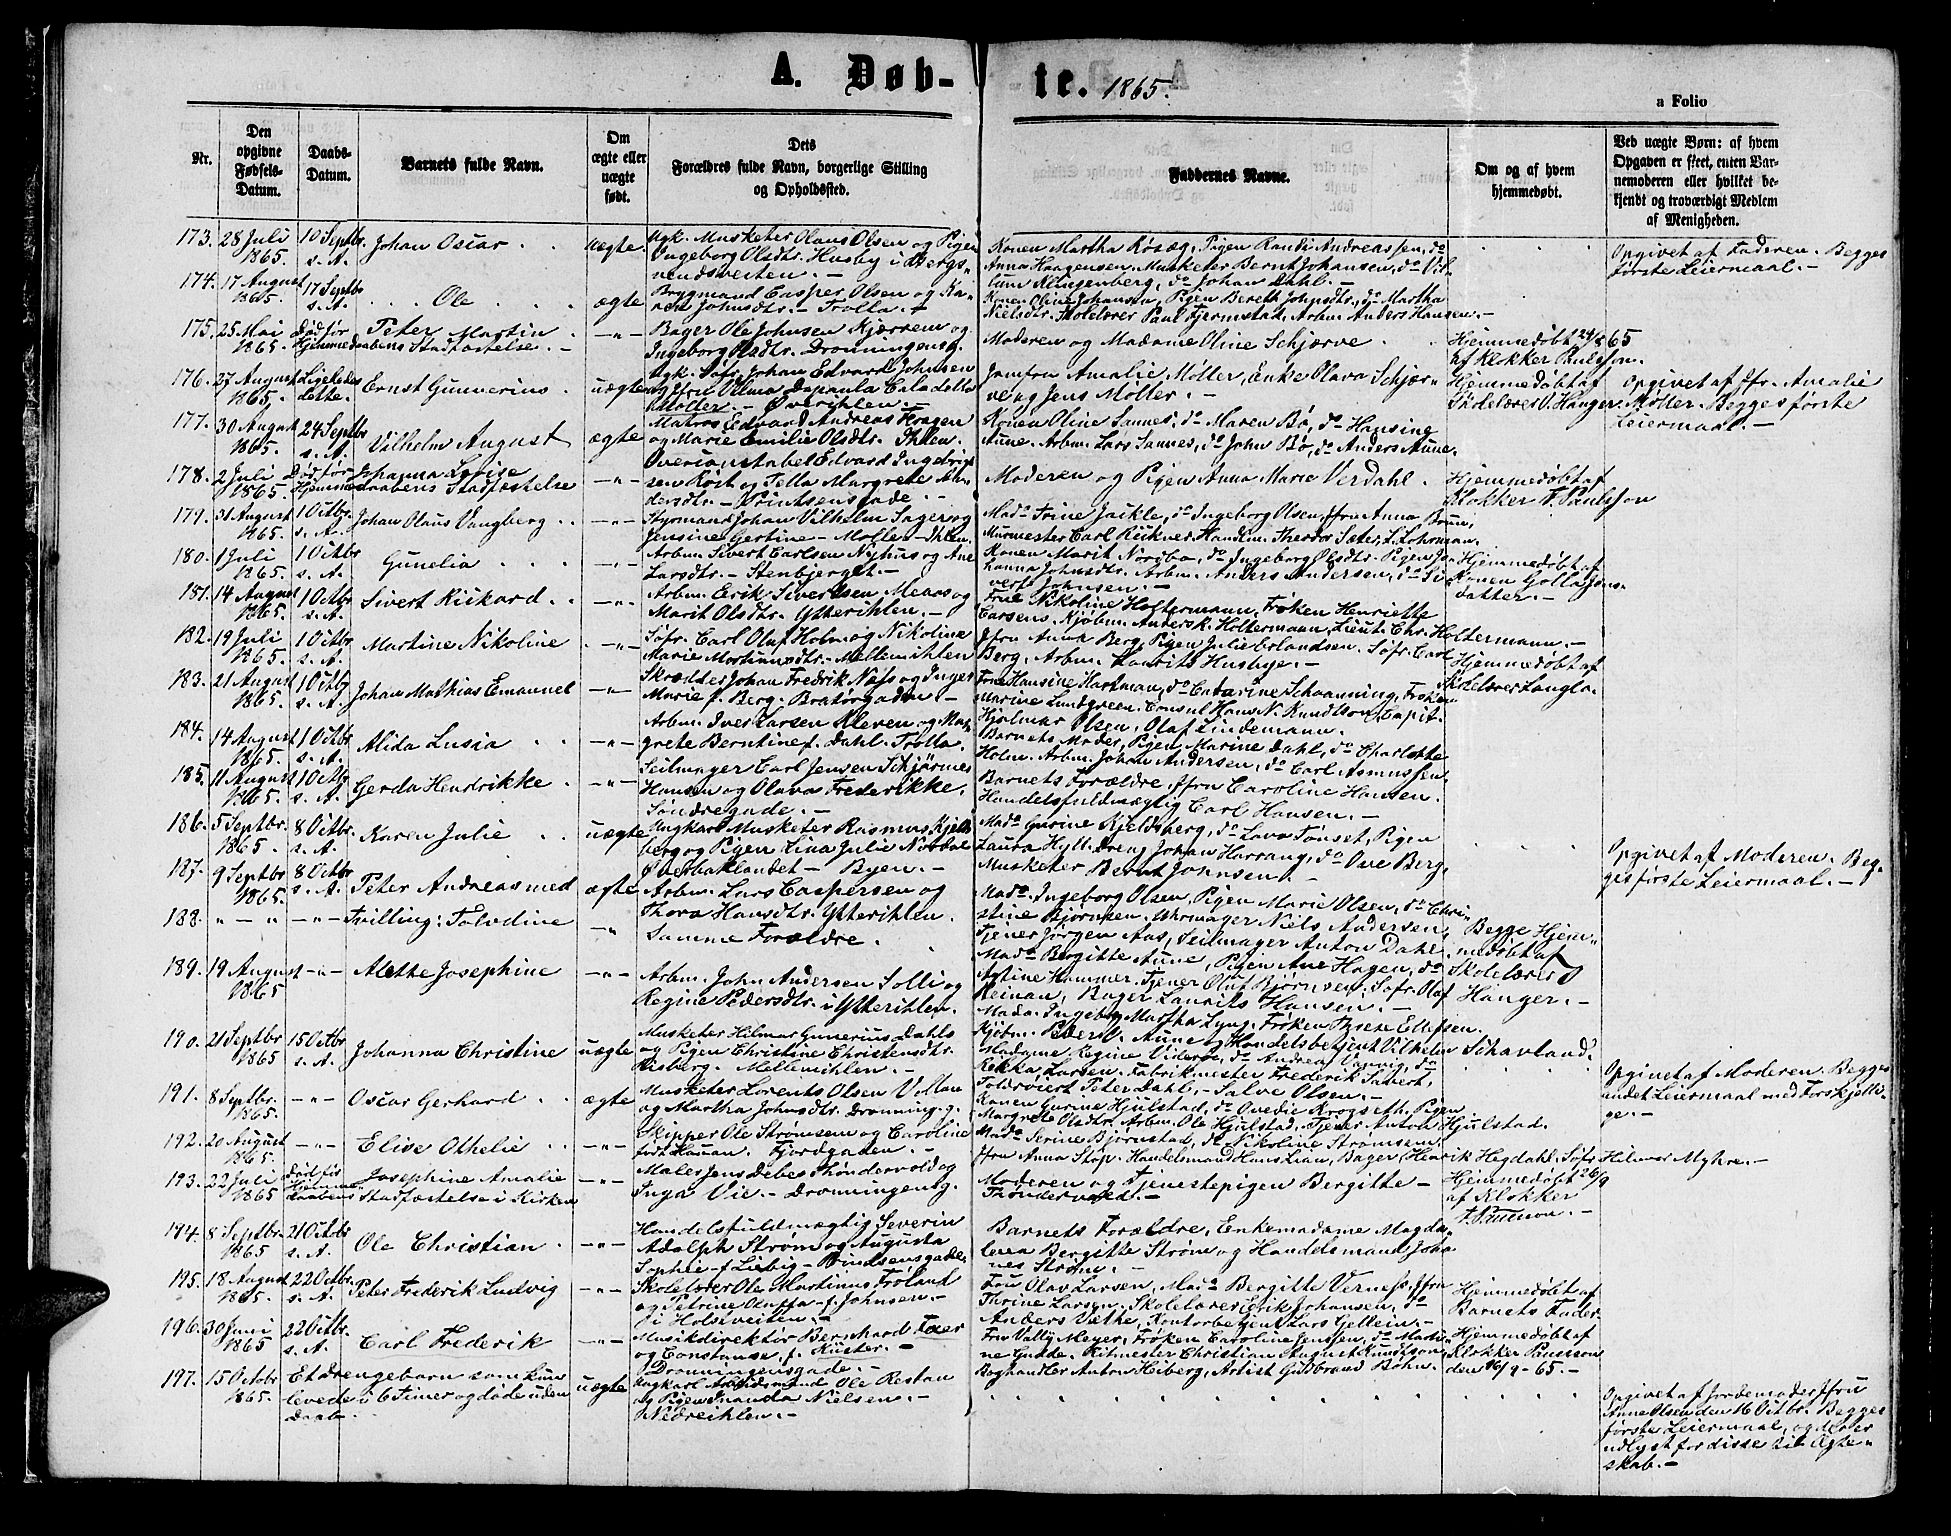 A. Døb-
te. 1865.
a Folio
Nr.
Den
opgivne
Fødsels-
Datum.
Daabs-
Datum.
Barnets fulde Navn.
Om
ægte eller
uægte
født.
Dets
Forældres fulde Navn, borgerlige Stilling
og Opholdssted.
Faddernes Navne.
Om og af hvem
hjemmedøbt.
Ved uægte Børn: af hvem
Opgaven er skeet, enten Bar-
nemoderen eller hvilket be-
kjendt og troværdigt Medlem
af Menigheden.
173. 28 Juli
1865.
10 Septbr.
s. A.
Johan Oscar
uægte
Ugk. Musketer Olaus Olsen og Pigen
Ingeborg Olsdtr. Husby i Bergs-
vendsveiten. -
Konen Martha Røsæg, Pigen Randi Andreassen, do
Anna Haagensen, Musketer Bernt Johansen, do Vil-
lum Klingenberg, do Johan Dahl. -
Opgivet af Faderen. Begges
første Leiermaal. -
174. 17 August
1865.
17 Septbr
s. A.
Ole
ægte
Brygmand Casper Olsen og Ka-
ren Johnsdtr. - Trolla. -
Konen Oline Johansen, Pigen Bereth Johnsdtr., do Martha
Nielsdtr. Skolelærer Paul Fjermstad, Arbm. Anders Hansen. -
175. 25 Mai
1865.
Død før
Hjemmedaabens Stadfæstelse. -
Peter Martin
-"-
Bager Ole Johnsen Kjærrem og
Ingeborg Olsdtr. Dronningensg.
Moderen og Madame Oline Schjærve
Hjemmedøbt 24/8 65
af Klokker Paulsson.
176. 27 August
1865.
Ligeledes
dette.
Ernst Gunnerius
uægte
Ugk. Søfr. Johan Edvard Johnsen
og Jfru Vilma Dapaula Eiladelta
Møller. - Øverihlen. -
Jomfru Amalie Møller, Enke Olava Schjær-
ve og Jens Møller. -
Hjemmedøbt af
Skolelærer V. Hanger.
Opgivet af Jfr. Amalie
Møller. Begges første
Leiermaal. -
177. 30 August
1865.
24 Septbr
s. A.
Vilhelm August
ægte
Matros Edvard Andreas Kragen
og Marie Emilie Olsdtr. Ihlen.
Konen Oline Sannes, do Maren Bø, do Hansine
Aune. Arbm. Lars Sannes, do John Bø, do Anders Aune.
178. 2 Juli
1865.
Død før
Hjemmedaabens Stadfæstelse
Johanna Lovise
-"-
Overconstabel Edvard Ingebrigt-
sen Rost og Tella Margrete An-
dersdtr. - Printsensgade. -
Moderen og Pigen Anna Marie Verdahl.
Hjemmedøbt af
Klokker F. Paulsson
179. 31 August
1865.
1 Octbr.
s. A.
Johan Olaus Vangberg
-"-
Styrmand Johan Vilhelm Sager og
Jensine Gertine - Møller - Ihlen.
Mado Trine Jackle, do Ingeborg Olsen, Jfru Anna Brun,
Murmester Carl Rickner, Handlm. Theodor Sæter, L. Lohrman.
180. 1 Juli
1865.
1 Octbr
s. A.
Gunelia
-"-
Arbm. Sivert Carlsen Nyhus og Ane
Larsdtr. - Stenbjerget. -
Konen Marit Norbo, do Ingeborg Olsdtr. Pigen Jo-
hanna Johnsdtr. Arbm. Anders Andersen, do Si-
vert Johnsen. -
Hjemmedøbt af
Konen Gollaugs-
datter. -
181. 14 August
1865.
1 Octbr
s. A.
Sivert Rickard
-"-
Arbm. Erik Sivertsen Mears og
Marit Olsdtr. Ytterihlen. -
Frue Nikoline Holtermann, Frøken Henriette
Carsens, Kjøbm. Anders K. Holtermann, Lieut. Chr. Holtermann. -
182. 19 Juli
1865.
1 Octbr
s. A.
Martine Nikoline
-"-
Søfr. Carl Oluf Holm og Nikoline
Marie Mortinusdtr. - Mellemihlen
Jfru Anna Berg, Pigen Julie Erlandsen, Søfr. Carl
Berg, Arbm. Laurits Husbye. -
Hjemmedøbt af
Skolelærer Langlo.
183. 21 August
1865.
1 Octbr
s. A.
Johan Mathias Emanuel
-"-
Skrædder Johan Fredrik Næss og Inger
Marie f. Berg. Bratørgaden. -
Frue Hansine Hartman, do Catarine Schaanning, Frøken
Marine Lundgreen, Consul Hans N. Knudtson, Capit.
Hjalmar Olsen, Olaf Lindemann.
184. 14 August
1865.
1 Octbr
s. A.
Alida Lusia
-"-
Arbm. Iver Larsen Kleven og Mar-
grete Berntine f. Dahl. Trolla.
Barnets Moder, Pigen Marine Dahl, do Charlotte
Holm. Arbm. Johan Andersen, do Carl Asmussen.
185. 11 August
1865.
1 Octbr
s. A.
Gerda Hendrikke
-"-
Seilmager Carl Jensen Schjærnes
Hansen og Olava Frederikke,
Søndregade. -
Barnets Forældre, Jfru Caroline Hansen.
Handelsfuldmægtig Carl Hansen. -
186. 5 Septbr.
1865.
8 Octbr.
s. A.
Karen Julie
uægte
Ungkarl Musketer Rasmus Kjelds-
berg og Pigen Lina Julie Nordal
Øverbaklandet - Byen. -
Mado Gurine Kjeldsberg, do Lava Tønset, Pigen
Laura Hyll. Dreng Johan Harrang, do Ove Berg,
Musketer Bernt Johnsen. -
Opgivet af Moderen. Beg-
ges første Leiermaal. -
187. 9 Septbr
1865.
8 Octbr
s. A.
Peter Andreas med
ægte
Arbm. Lars Caspersen og
Thora Hansdtr. Ytterihlen.
Mado. Ingeborg Olsen, Pigen Marie Olsen, do Chri-
stine Bjørnsen. Uhrmager Niels Andersen,
Tjener Jørgen Aas, Seilmager Anton Dahl.
188. " - " -"-
Tvilling: Tolvdine
-"-
Samme Forældre.
Mado Bergitte Aune, Pigen Ane Hagen, do
Agtine Hammer. Tjener Oluf Bjørnsen, Søfr. Olaf
Reinan, Bager Laurits Hansen. -
Begge Hjem-
medøbt af
Skolelærer
Hanger. -
189. 19 August
1865
-"-
Alette Josephine
-"-
Arbm. John Andersen Solli og
Regine Pedersdtr. i Ytterihlen.
Mada. Ingeborg Martha Lyng. Frøken Therese Ellefsen.
Kjøbm. Peter V. Aune og Handelsbetjent Vilhelm Schavland.
190. 21 Septbr
1865
15 Octbr
s. A.
Johanna Christine
uægte
Musketer Hilmar Gunerius Dahls
og Pigen Christine Christensdtr.
Risberg. Mellemihlen. -
Madame Regine Viderøe, do Andrea Vannig, do
Rekka Larsen. Fabrikmester Frederik Siwert,
Toldrorert Peter Dahl. - Salve Olsen. -
Opgivet af Moderen. Begges
andet Leiermaal med Forskjelli-
ge. -
191. 8 Septbr.
1865.
-"-
Oscar Gerhard
ægte
Musketer Lorents Olsen Viktan
og Martha Johnsdtr. Dronning. g.
Konen Gurine Hjulstad, do Ovedie Krogseth. Pigen
Margrete Olsdtr. Arbm. Ole Hjulstad. Tjener Anton Hjulstad.
192. 20 August
1865.
-"-
Elise Othelie
-"-
Skipper Ole Strømsem og Caroline
født Hauan. Fjordgaden. -
Mado Serine Bjørnstad, do Nikoline Strømsem.
Jfru Anna Støp. Handelsmand Hans Lian, Bager Henrik Hegdahl. Søfr. Hilmar Myhre. -
193. 22 Juli
1865
Død før
Hjemme-
daabens
Josephine Amalie
Stadfæstelse i Kirken
-"-
Maler Jens Debes Thøndervold og
Inga Vie. - Dronningensg.
Moderen og Tjenestepigen Bergitte
Thøndervold. -
Hjemmedøbt 26/9
af Klokker
F. Paulson. -
194. 8 Septbr.
1865
21 Octobr
s. A.
Ole Christian
-"-
Handelsfuldmægtig Severin
Adolph Strøm og Augusta
Sophie - f. Liebig - Prindsensgade.
Barnets Forældre, Enkemadame Magda-
lena Bergitte Strøm og Handelsmand Johan-
nes Strøm. -
195. 18 August
1865.
22 Octbr.
s. A.
Peter Frederik Ludvig
-"-
Skolelærer Ole Martinus Froland
og Petrine Oluffa - f. Johnsen. -
i Holstveiten. -
Fru Olav Larsen, Mado Bergitte Verness, Jfru
Thrine Larsen. Skolelærer Erik Johansen, do
Anders Væthe, Kontorbetjent Lars Gjellein. -
Hjemmedøbt af
Barnets Fader.
196. 30 Juni
1865
22 Octbr.
s. A.
Carl Frederik
-"-
Musikdirektør Bernhard Faer
og Constanse f. Küster. -
Dronningensgade. -
Fru Vally Meyer, Frøken Caroline Jenssen, do Marti-
ne Gude. Ritmester Christian August Knudtson,
Boghandler Anton Heiberg, Artist Gudbrand Bøhn.
Hjemmedøbt af
Klokker Paulsson
den 16/9 - 65. -
197. 15 Octobr
1865.
Et drengebarn som kun
levede i 6 Timer og døde uden
Daab
uægte
Ungkarl Arbeidsmand Ole Restan
og Pigen Inanda Nielsen. -
Nedreihlen. -
Opgivet af Jordemoder Jfru
Anne Olsen den 16 Octbr. Begges
første Leiermaal, og de er
udlyst for disse til Ægte-
skab. -